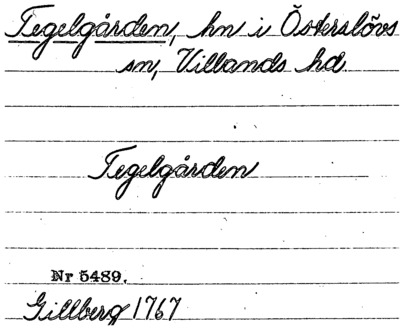 Tegelgården, hn i Österslövs
sn, Villands hd.
Tegelgården
Nr 5489.
Gillberg 1767